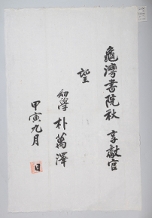 龜灣書院秋享獻官
望
幼學朴萬澤
甲寅九月 日